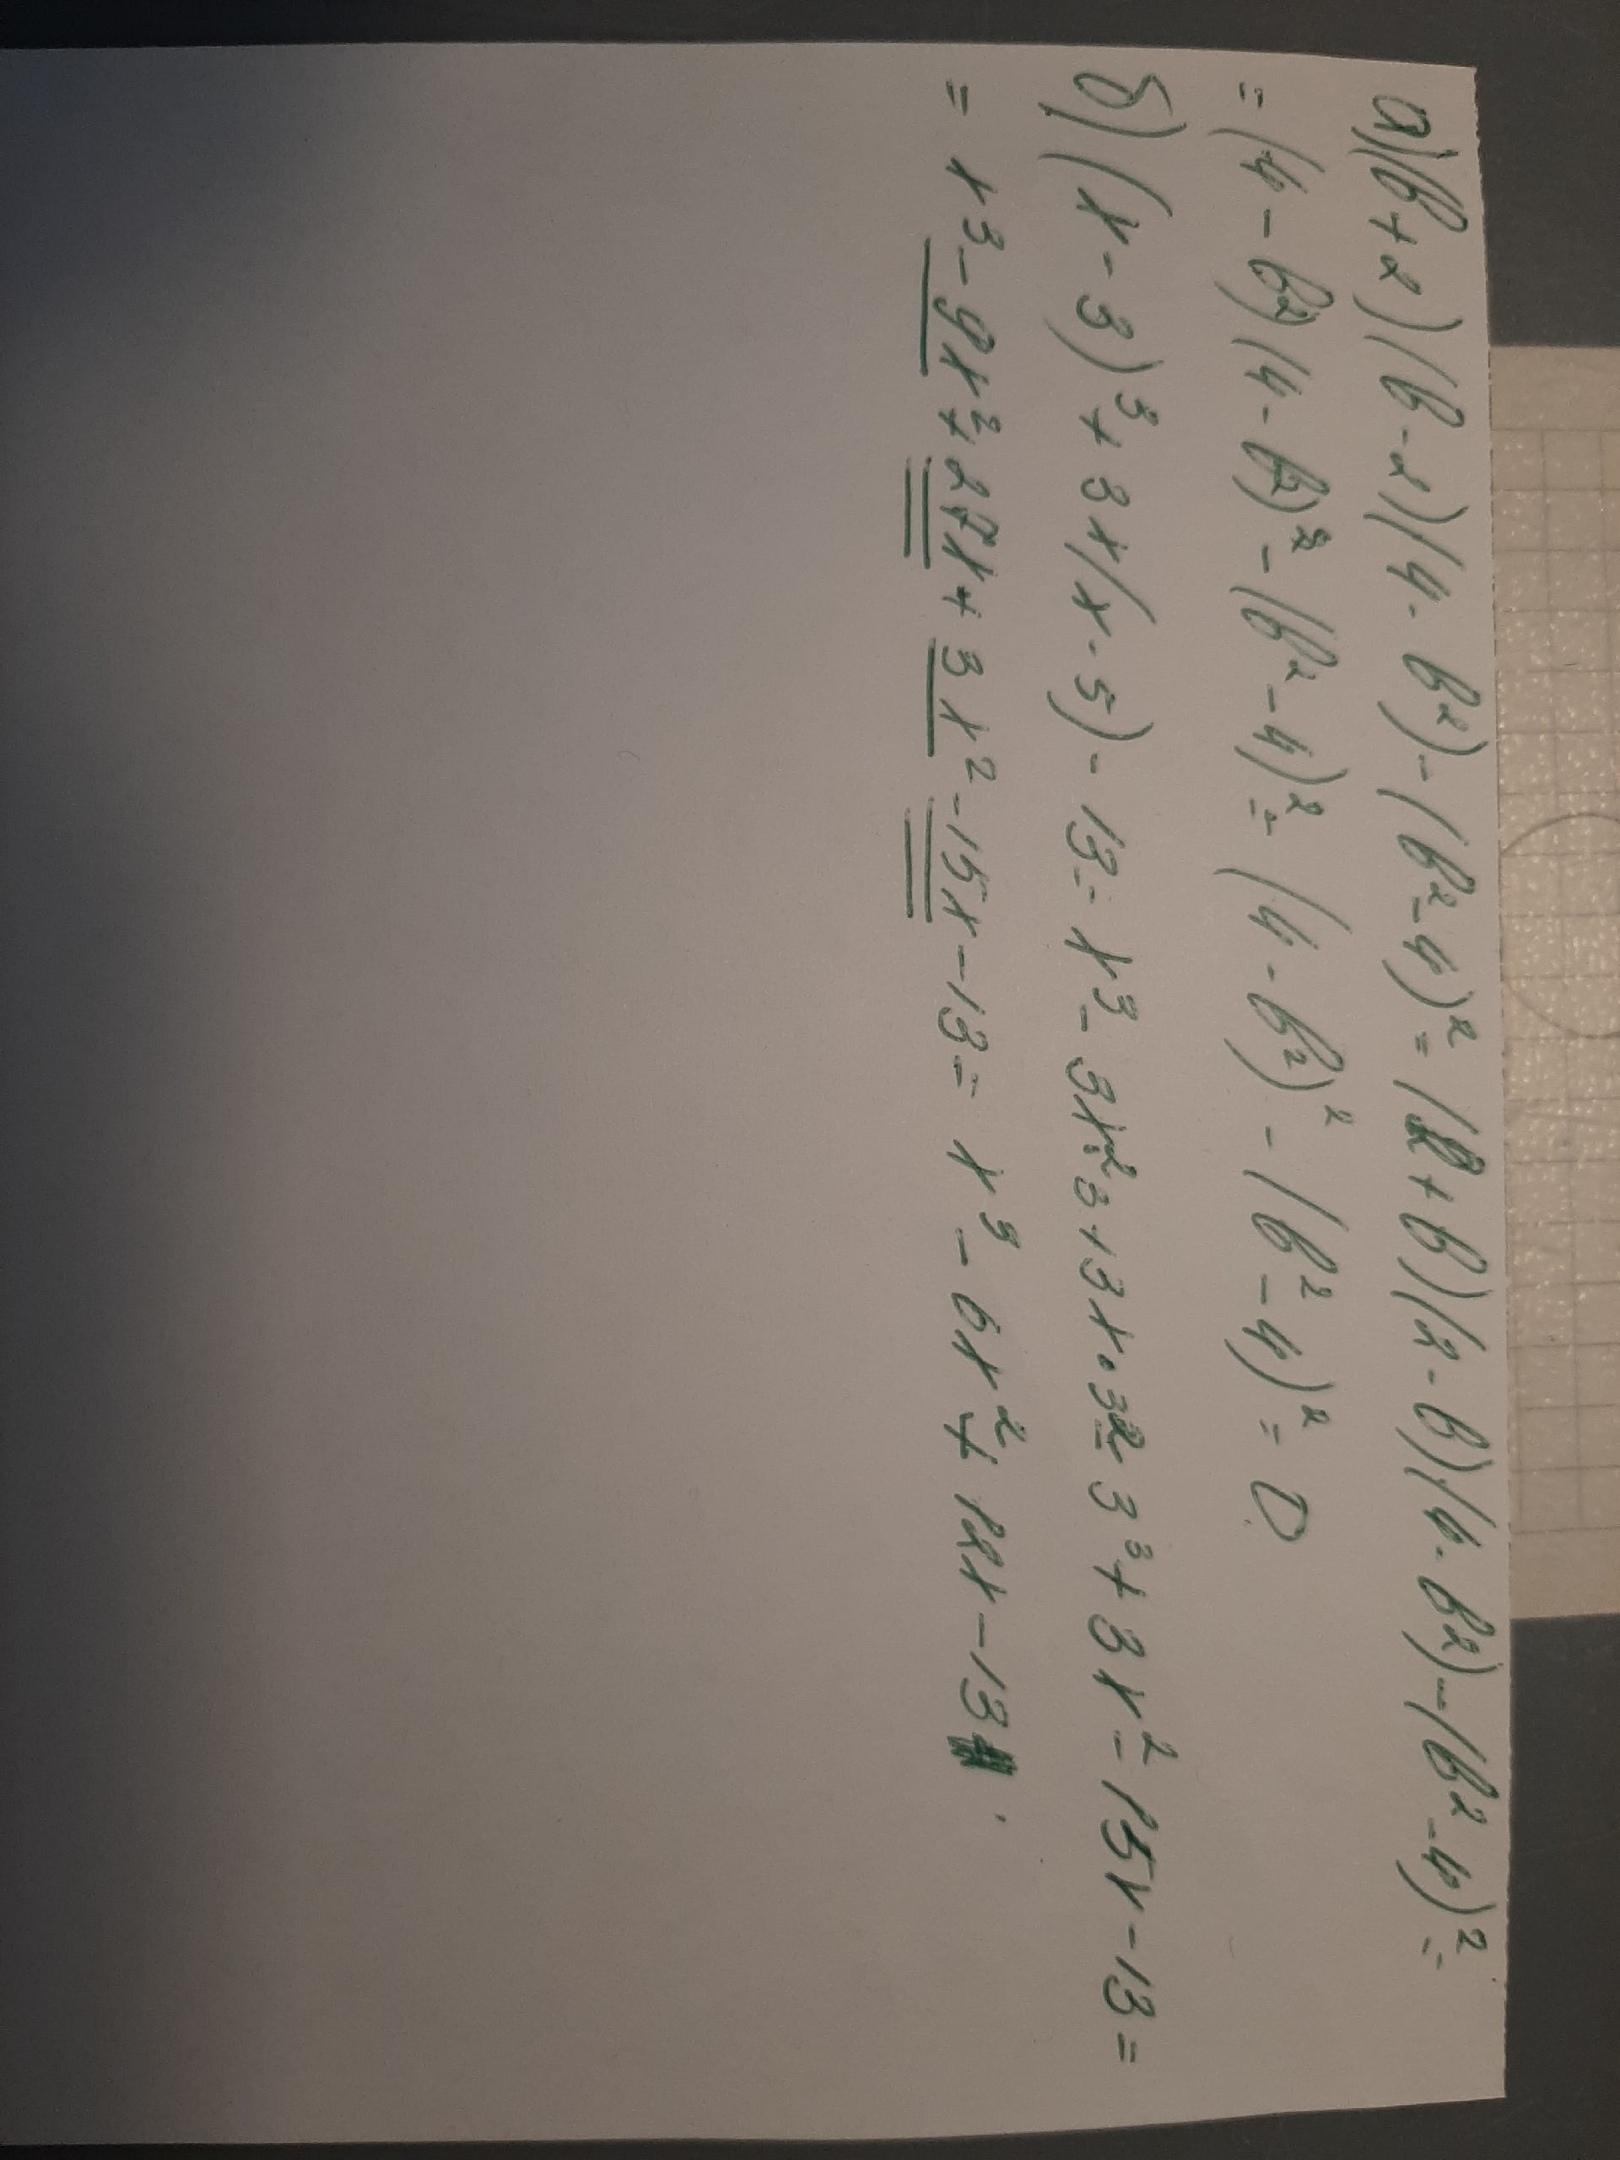 а) (b+2)(b-2)(4-b²)-(b²-4)²=(2+b)(2-b)(4-b²)-(b²-4)²=
=(4-b²)(4-b²)²-(b²-4)²=(4-b²)²-(b²-4)²=0
б) (x-3)³+3x(x-5)-13=x³-3x²·3+3x·3²-3³+3x²-15x-13=
=x³-9x²+27x+3x²-15x-13=x³-6x²+12x-13